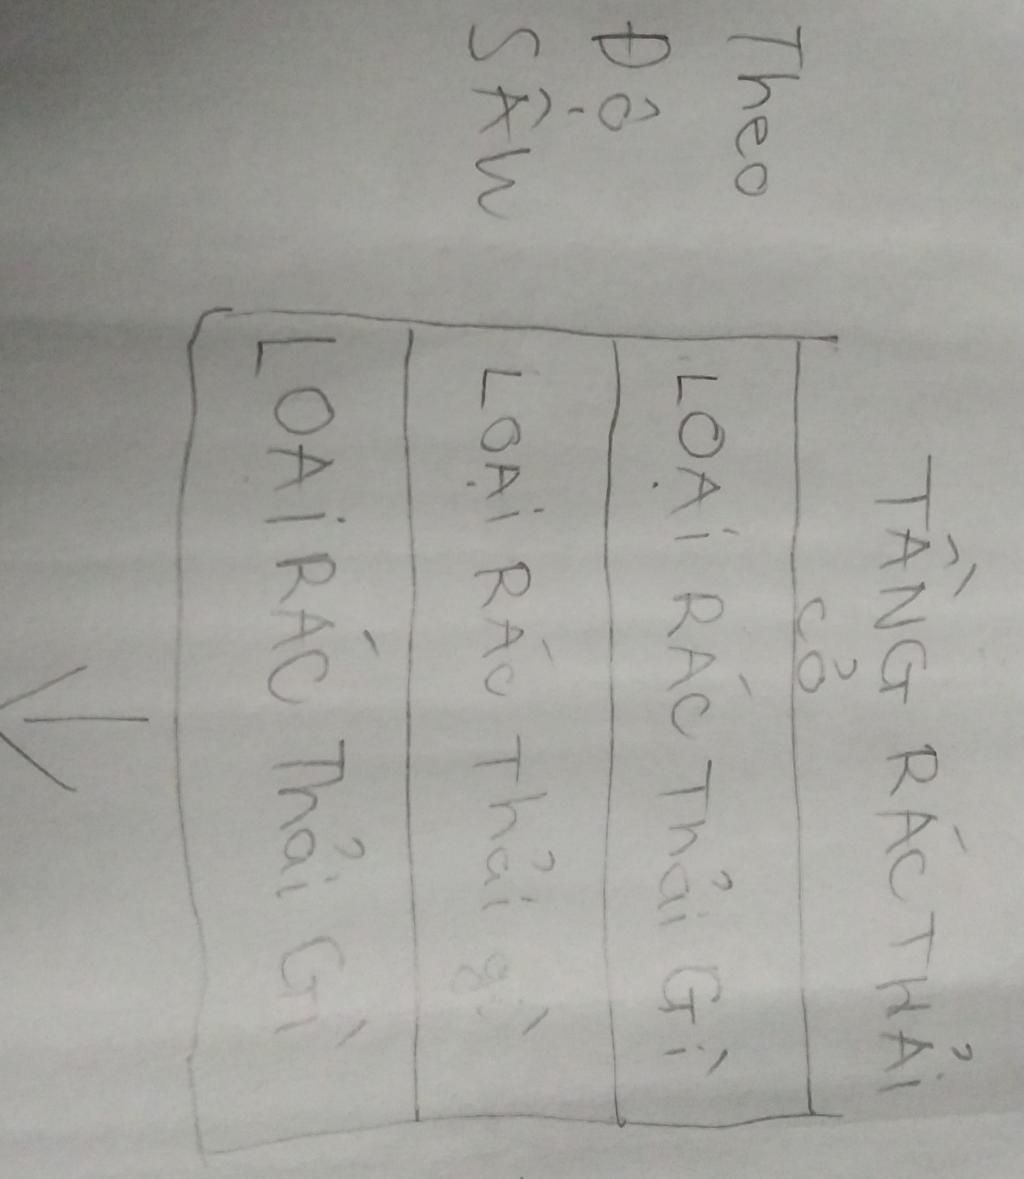 TẦNG RÁC THẢI
CỔ
Theo
Độ
SÂU
LOẠI RÁC Thải Gì
LOẠI RÁC Thải gì
LOẠI RÁC Thải Gì